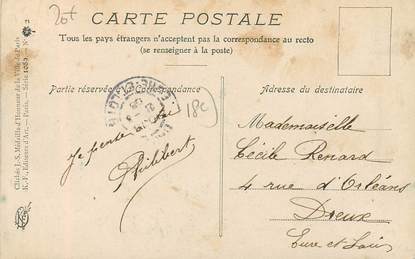 20f
CARTE POSTALE
Tous les pays étrangers n'acceptent pas la correspondance au recto
(se renseigner à la poste)
Partie réservée à la Correspondance
Adresse du destinataire
18c
Je pense à toi
Philibert
Mademoiselle
Cécile Renard
4 rue d'Orléans
Dreux
Eure et Loir
Clichés L-S. Médaille d'Honneur de la Ville de Paris
K. F., Editeurs d'Art. — Paris. — Série 1083. — N° 2